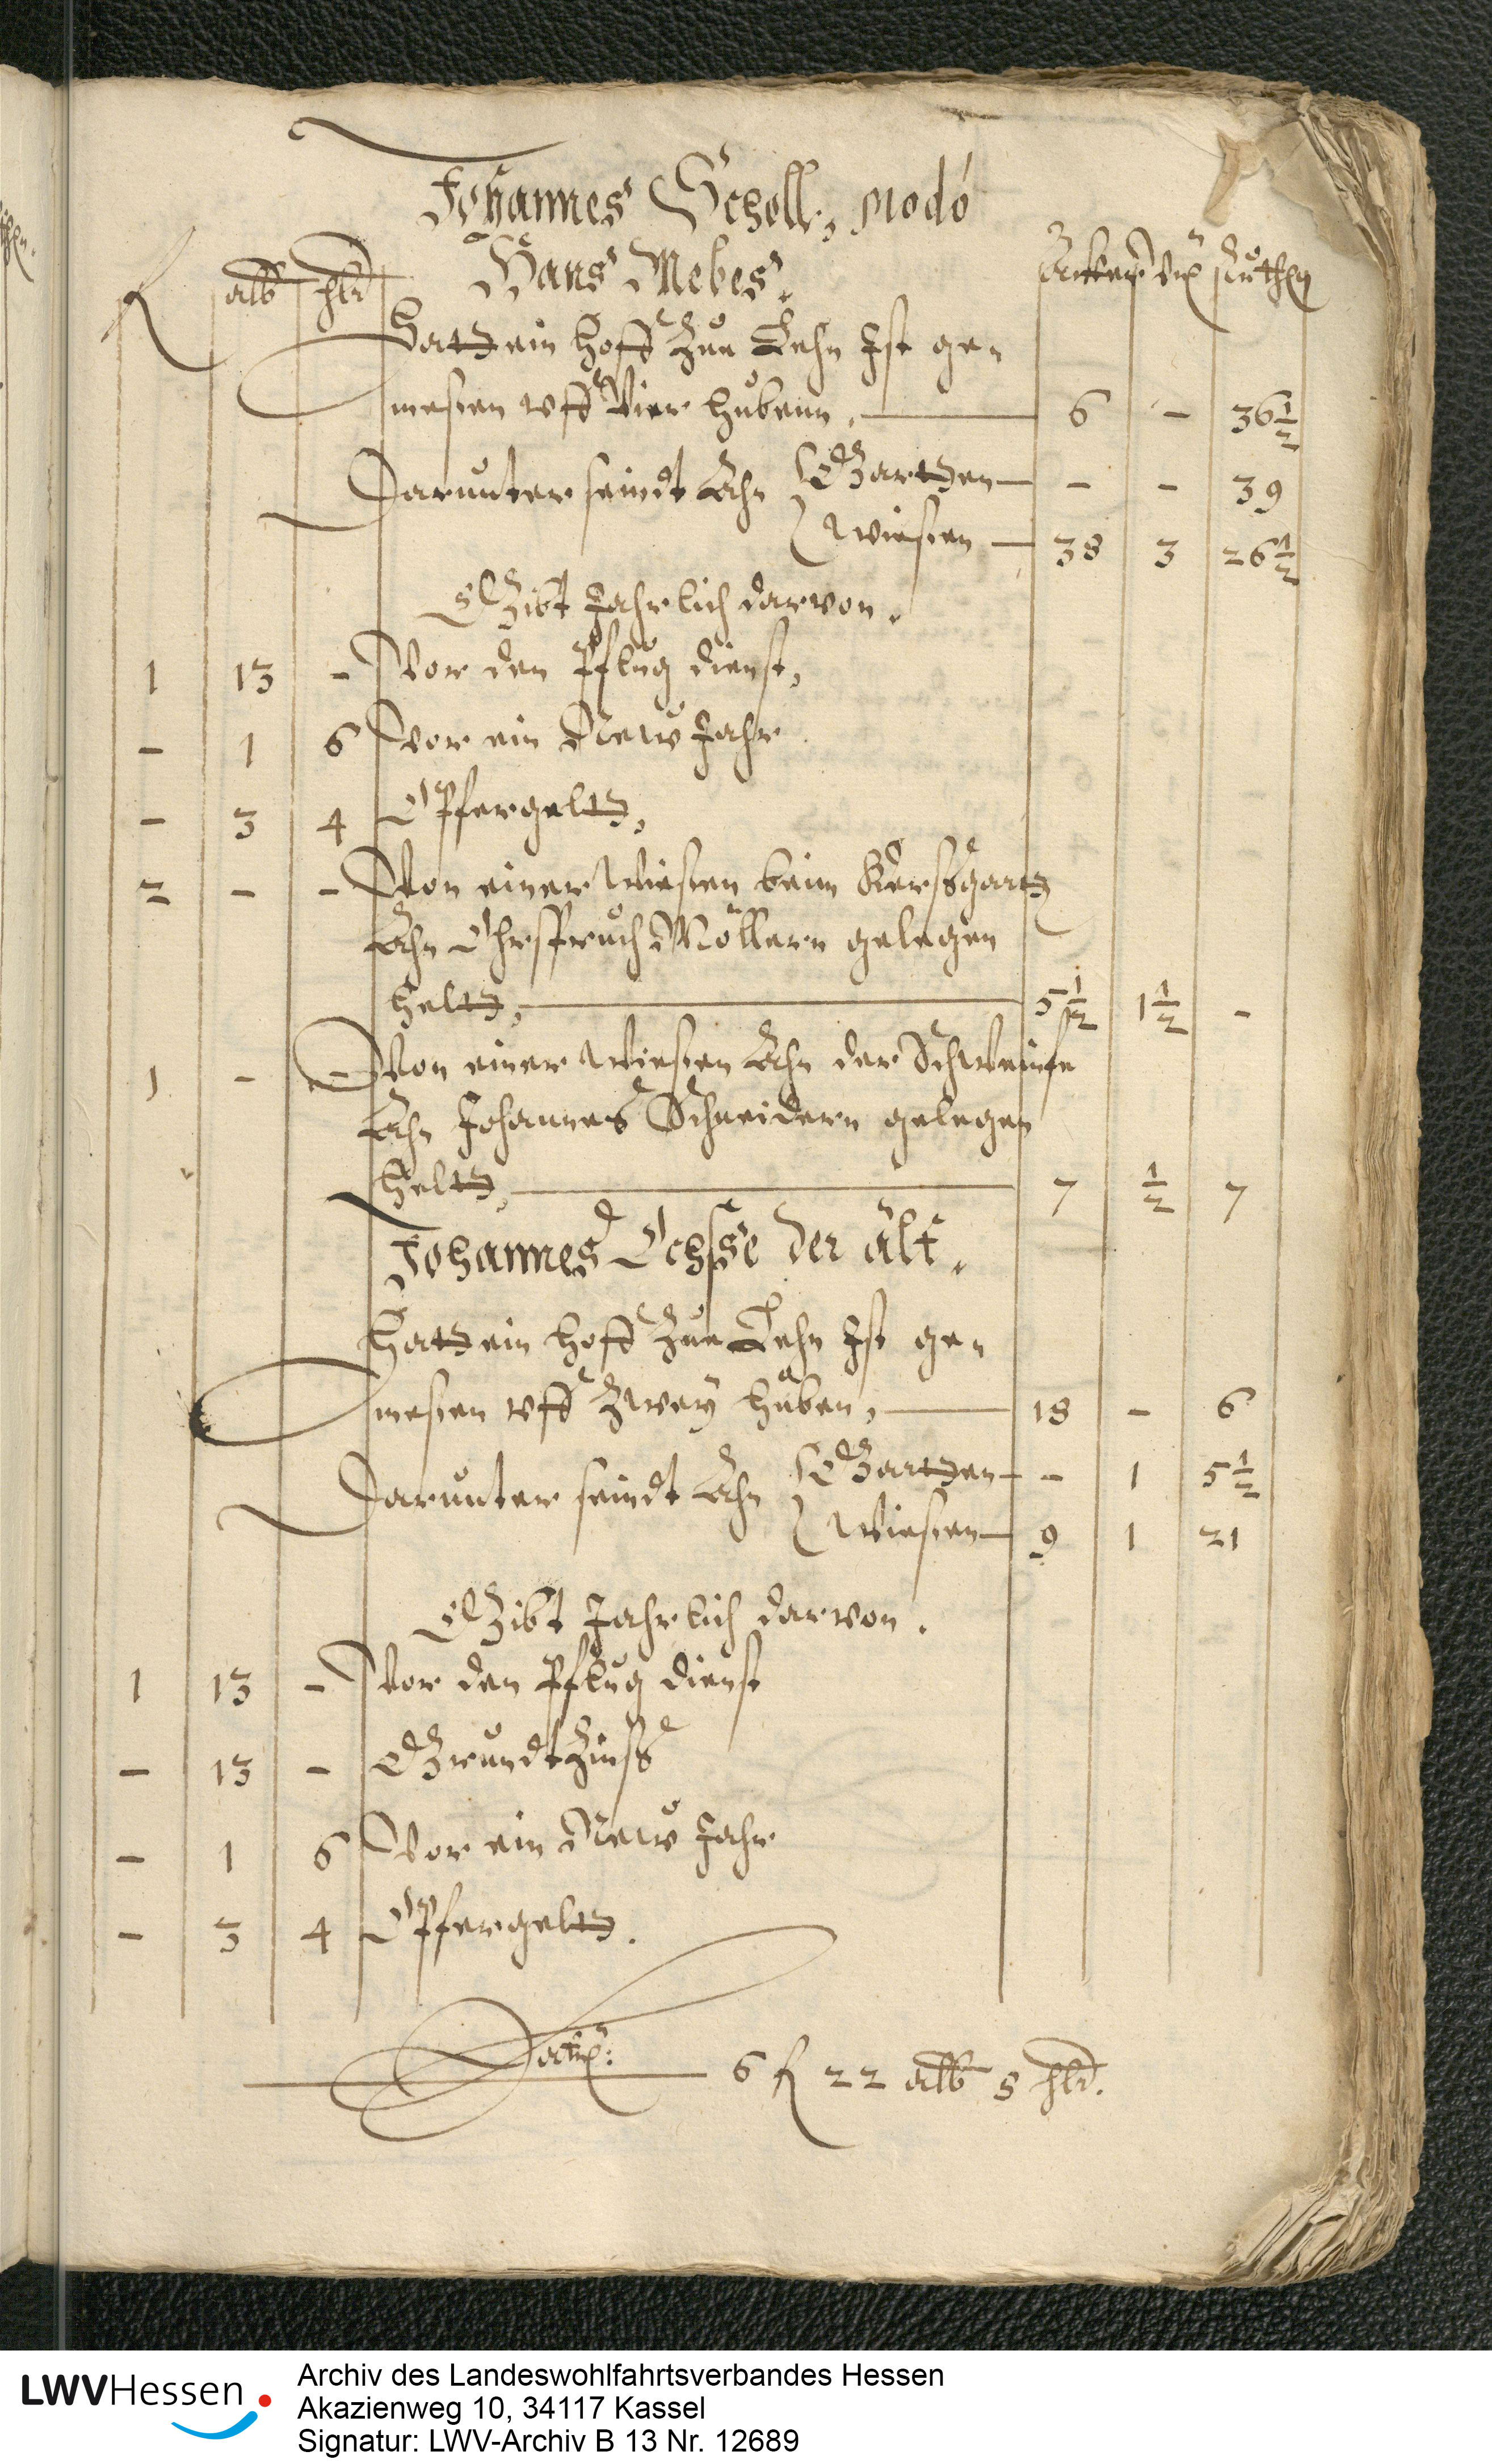 Johannes Scholl, modó
Hans Mebes.
fl alb hlr Acker Vrt Ruthen
Hatt ein Hoff zue Lehn Ist ge-
messen vff Vier huben. — 6 - 36½
Darunter seindt Ahn Gartten — - - 39
Wiessen — 38 3 26½
Gibt Jahrlich darvon.
1 13 - Vor den Pflug dienst,
- 1 6 Vor ein New Jahr
- 3 4 Opffergeltt,
2 - - Von einer Wiessen beim
Ahn Möllern gelegen
heltt, — 5½ 1½ -
1 - - Von einer Wiessen Ahn der
Ahn Johannes Schneidern gelegen
heltt, — 7 ½ 7
Johannes Ochsse der alt.
Hatt ein Hoff zue Lehn Ist ge-
messen vff zwey huben, — 18 - 6
Darunter seindt Ahn Gartten — - 1 5½
Wiessen — 9 1 21
Gibt Jahrlich darvon.
1 13 - Vor den Pflug dienst
- 13 - Grundt Zinß
- 1 6 Vor ein New Jahr
- 3 4 Opffergeltt.
6 fl 22 alb 8 hlr.
LWVHessen
Archiv des Landeswohlfahrtsverbandes Hessen
Akazienweg 10, 34117 Kassel
Signatur: LWV-Archiv B 13 Nr. 12689